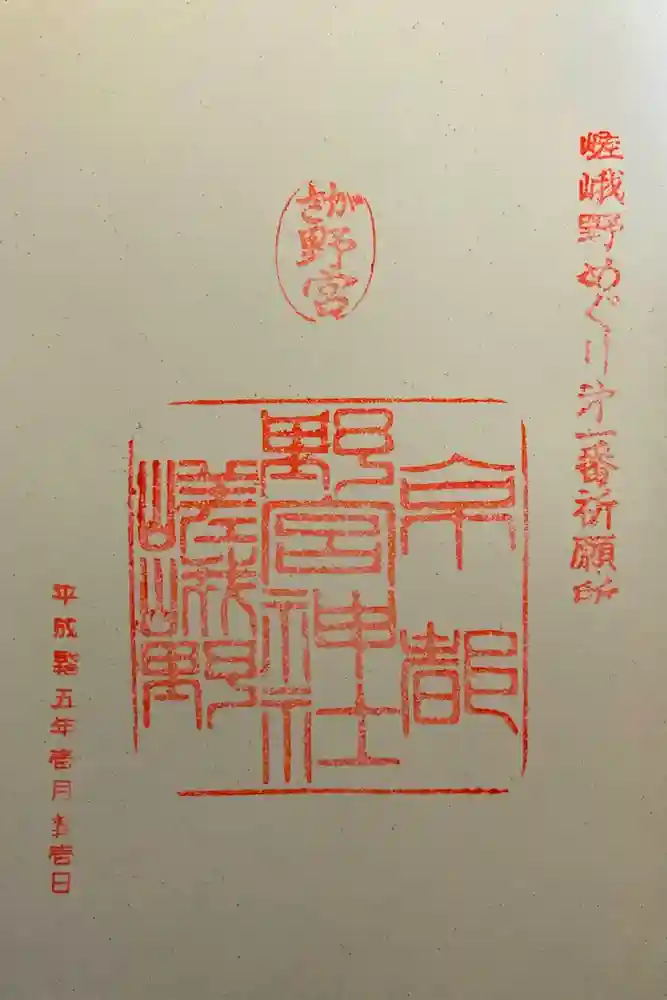 嵯峨野めぐり㐧一番祈願所
さが
野宮
京都
野宮神社
嵯峨野
平成 五年壱月 壱日